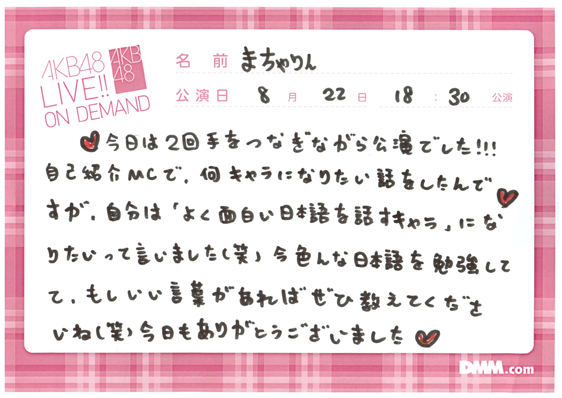 AKB48
LIVE!!
ON DEMAND
AKB
48
名前 まちゃりん
公演日 8月22日 18:30公演
今日は2回手をつなぎながら公演でした!!!
自己紹介MCで、何キャラになりたい話をしたんで
すが、自分は「よく面白い日本語を話すキャラ」にな
りたいって言いました(笑)今色んな日本語を勉強して
て、もしいい言葉があればぜひ教えてくださ
いね(笑)今日もありがとうございました
DMM.com